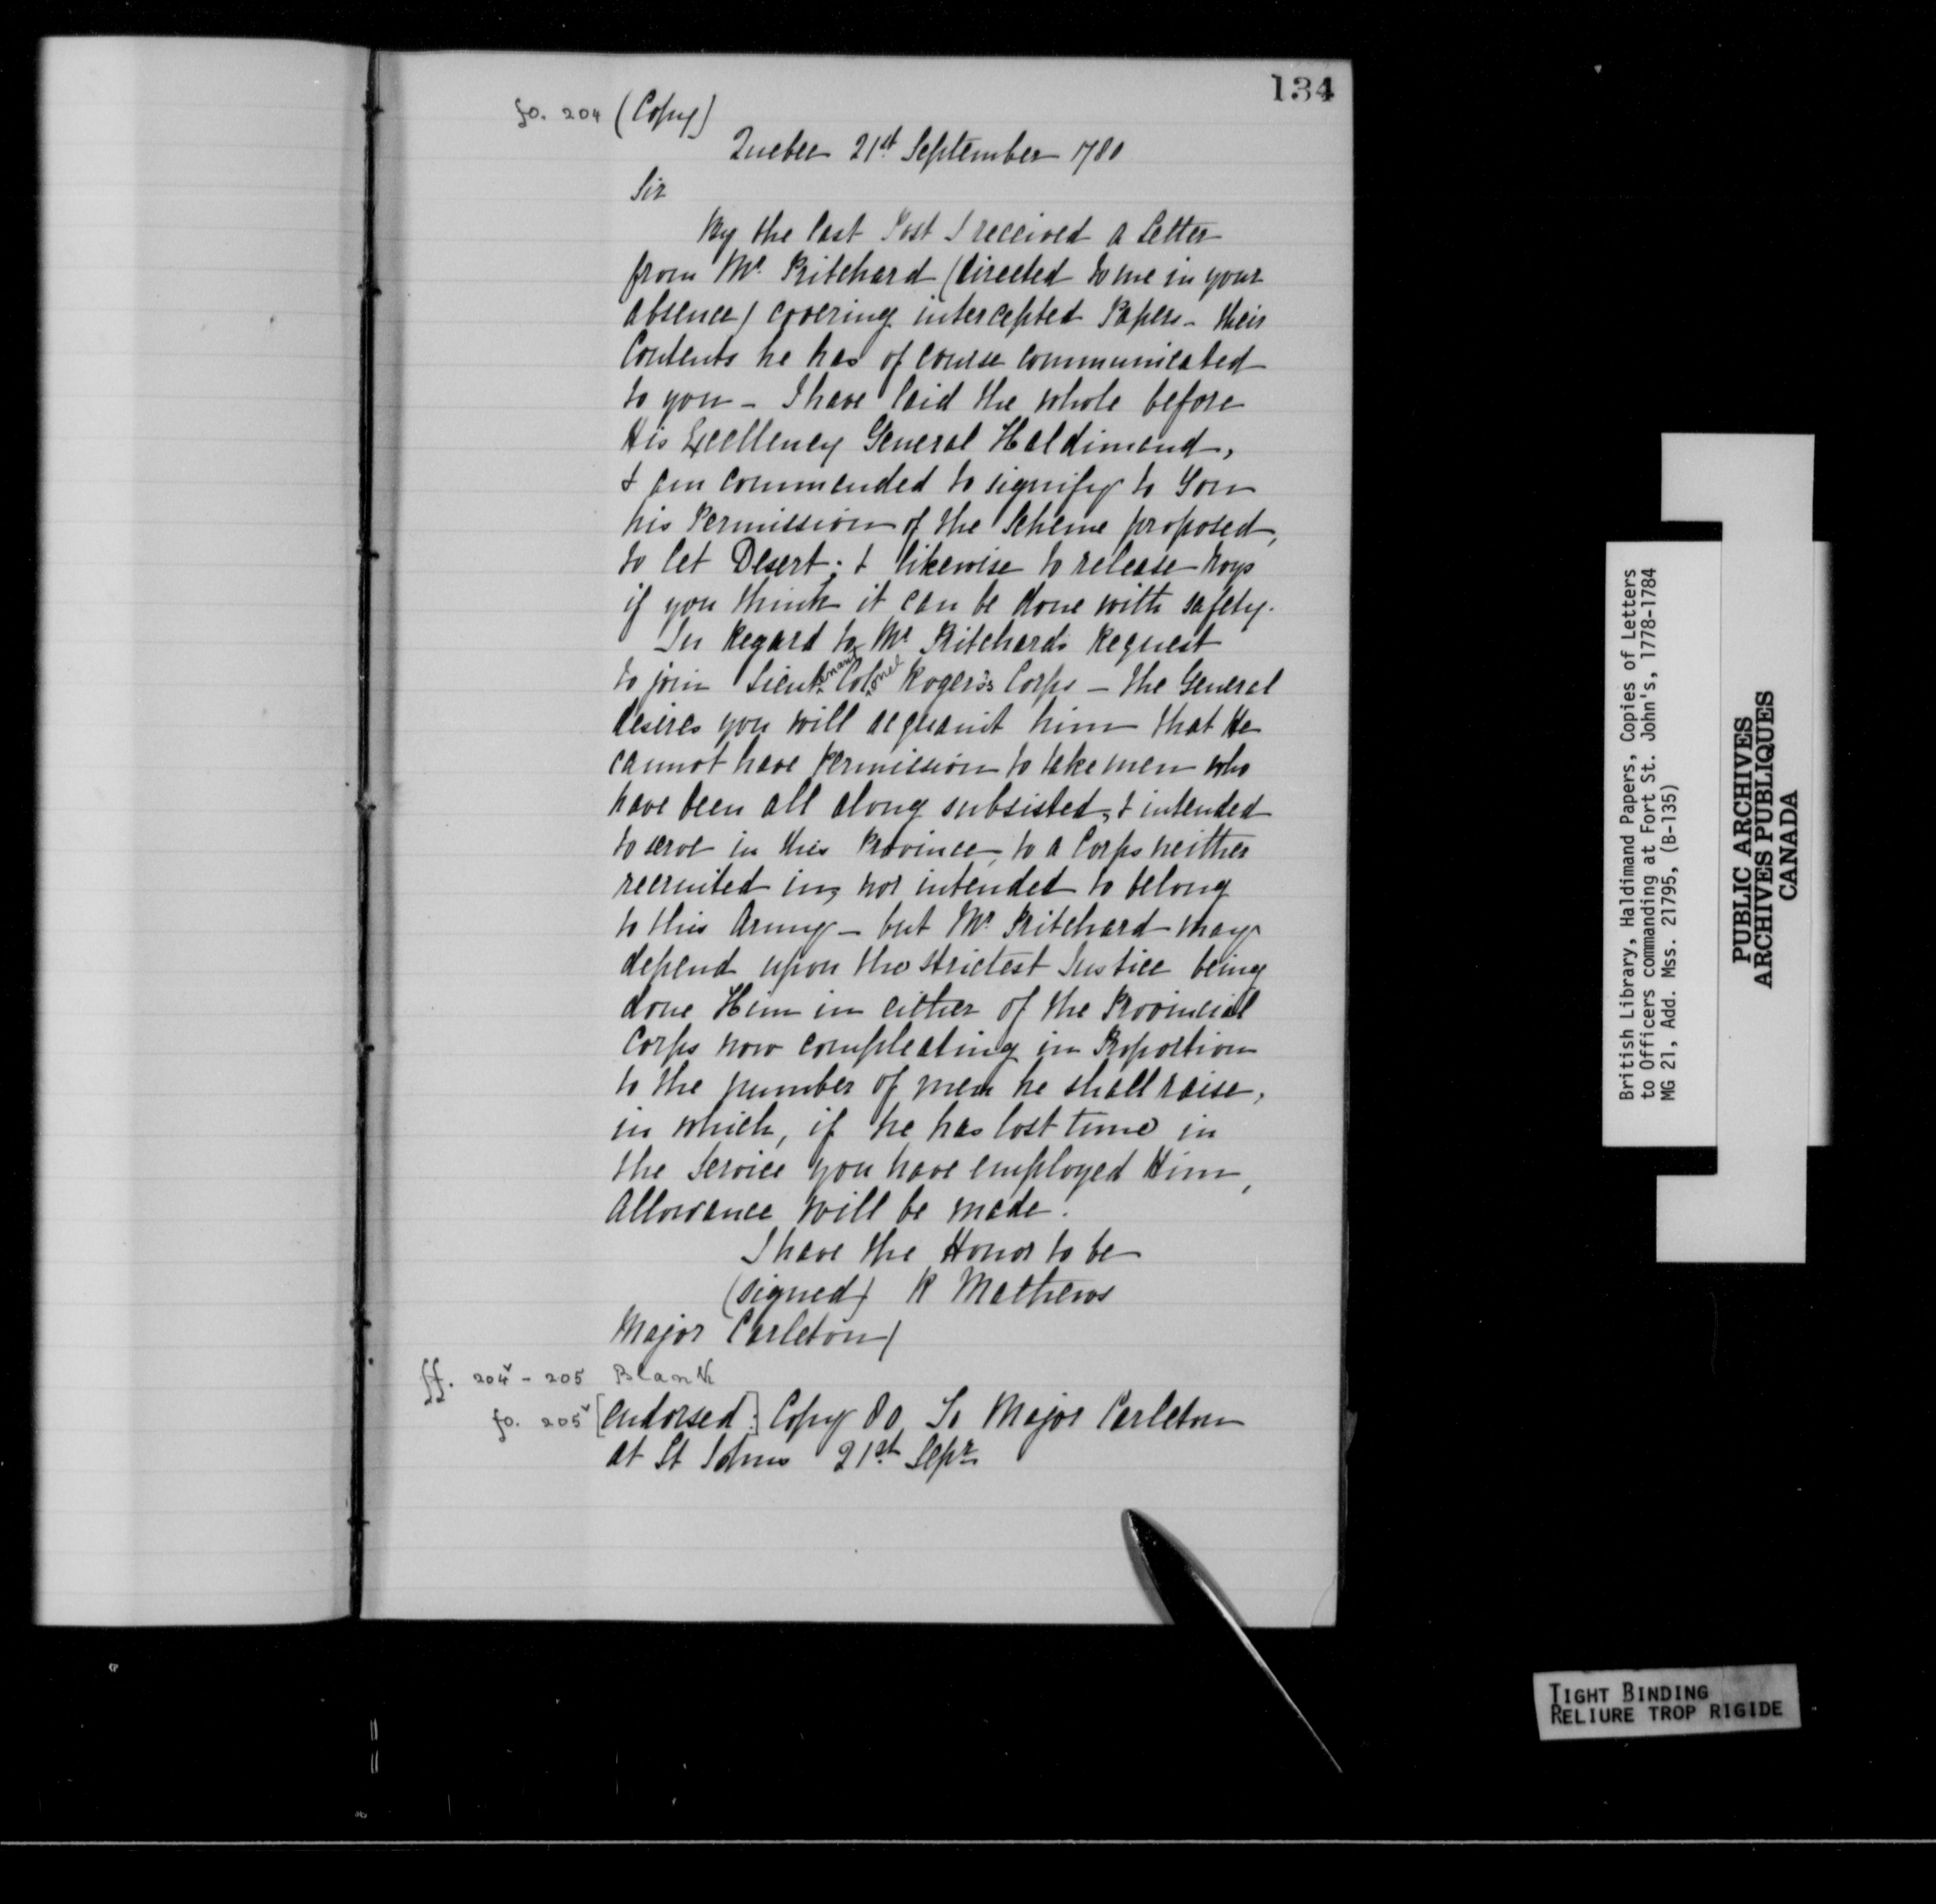 134
fo. 204 (Copy)
Quebec 21st September 1780
Sir
By the last Post I received a Letter
from Mr. Pritchard (directed to me in your
absence) covering intercepted Papers - their
Contents he has of course communicated
to you - I have laid the whole before
His Excellency General Haldimand,
& am commanded to signify to You
his Permission of the Scheme proposed,
to let Desert; & likewise to release
if you think it can be done with safety.
In Regard to Mr Pritchards Request
to join Lieutenant Colonel Rogers's Corps - the General
desires you will acquaint him that He
cannot have Permission to take men who
have been all along subsisted, & intended
to serve in this Province, to a Corps neither
recruited in, nor intended to belong
to this Army - but Mr. Pritchard may
depend upon the strictest Justice being
done Him in either of the Provincial
Corps now compleating in Proportion
to the number of men he shall raise,
in which, if he has lost time in
the Service you have employed Him,
allowance will be made.
I have the Honor to be
(signed) R Mathews
Major Carleton)
ff. 204v - 205 Blank
fo. 205v [endorsed:] Copy 80, To Major Carleton
at St Johns 21st Sepr
British Library, Haldimand Papers, Copies of Letters
to Officers commanding at Fort St. John's, 1778-1784
MG 21, Add. Mss. 21795, (B-135)
PUBLIC ARCHIVES
ARCHIVES PUBLIQUES
CANADA
TIGHT BINDING
RELIURE TROP RIGIDE